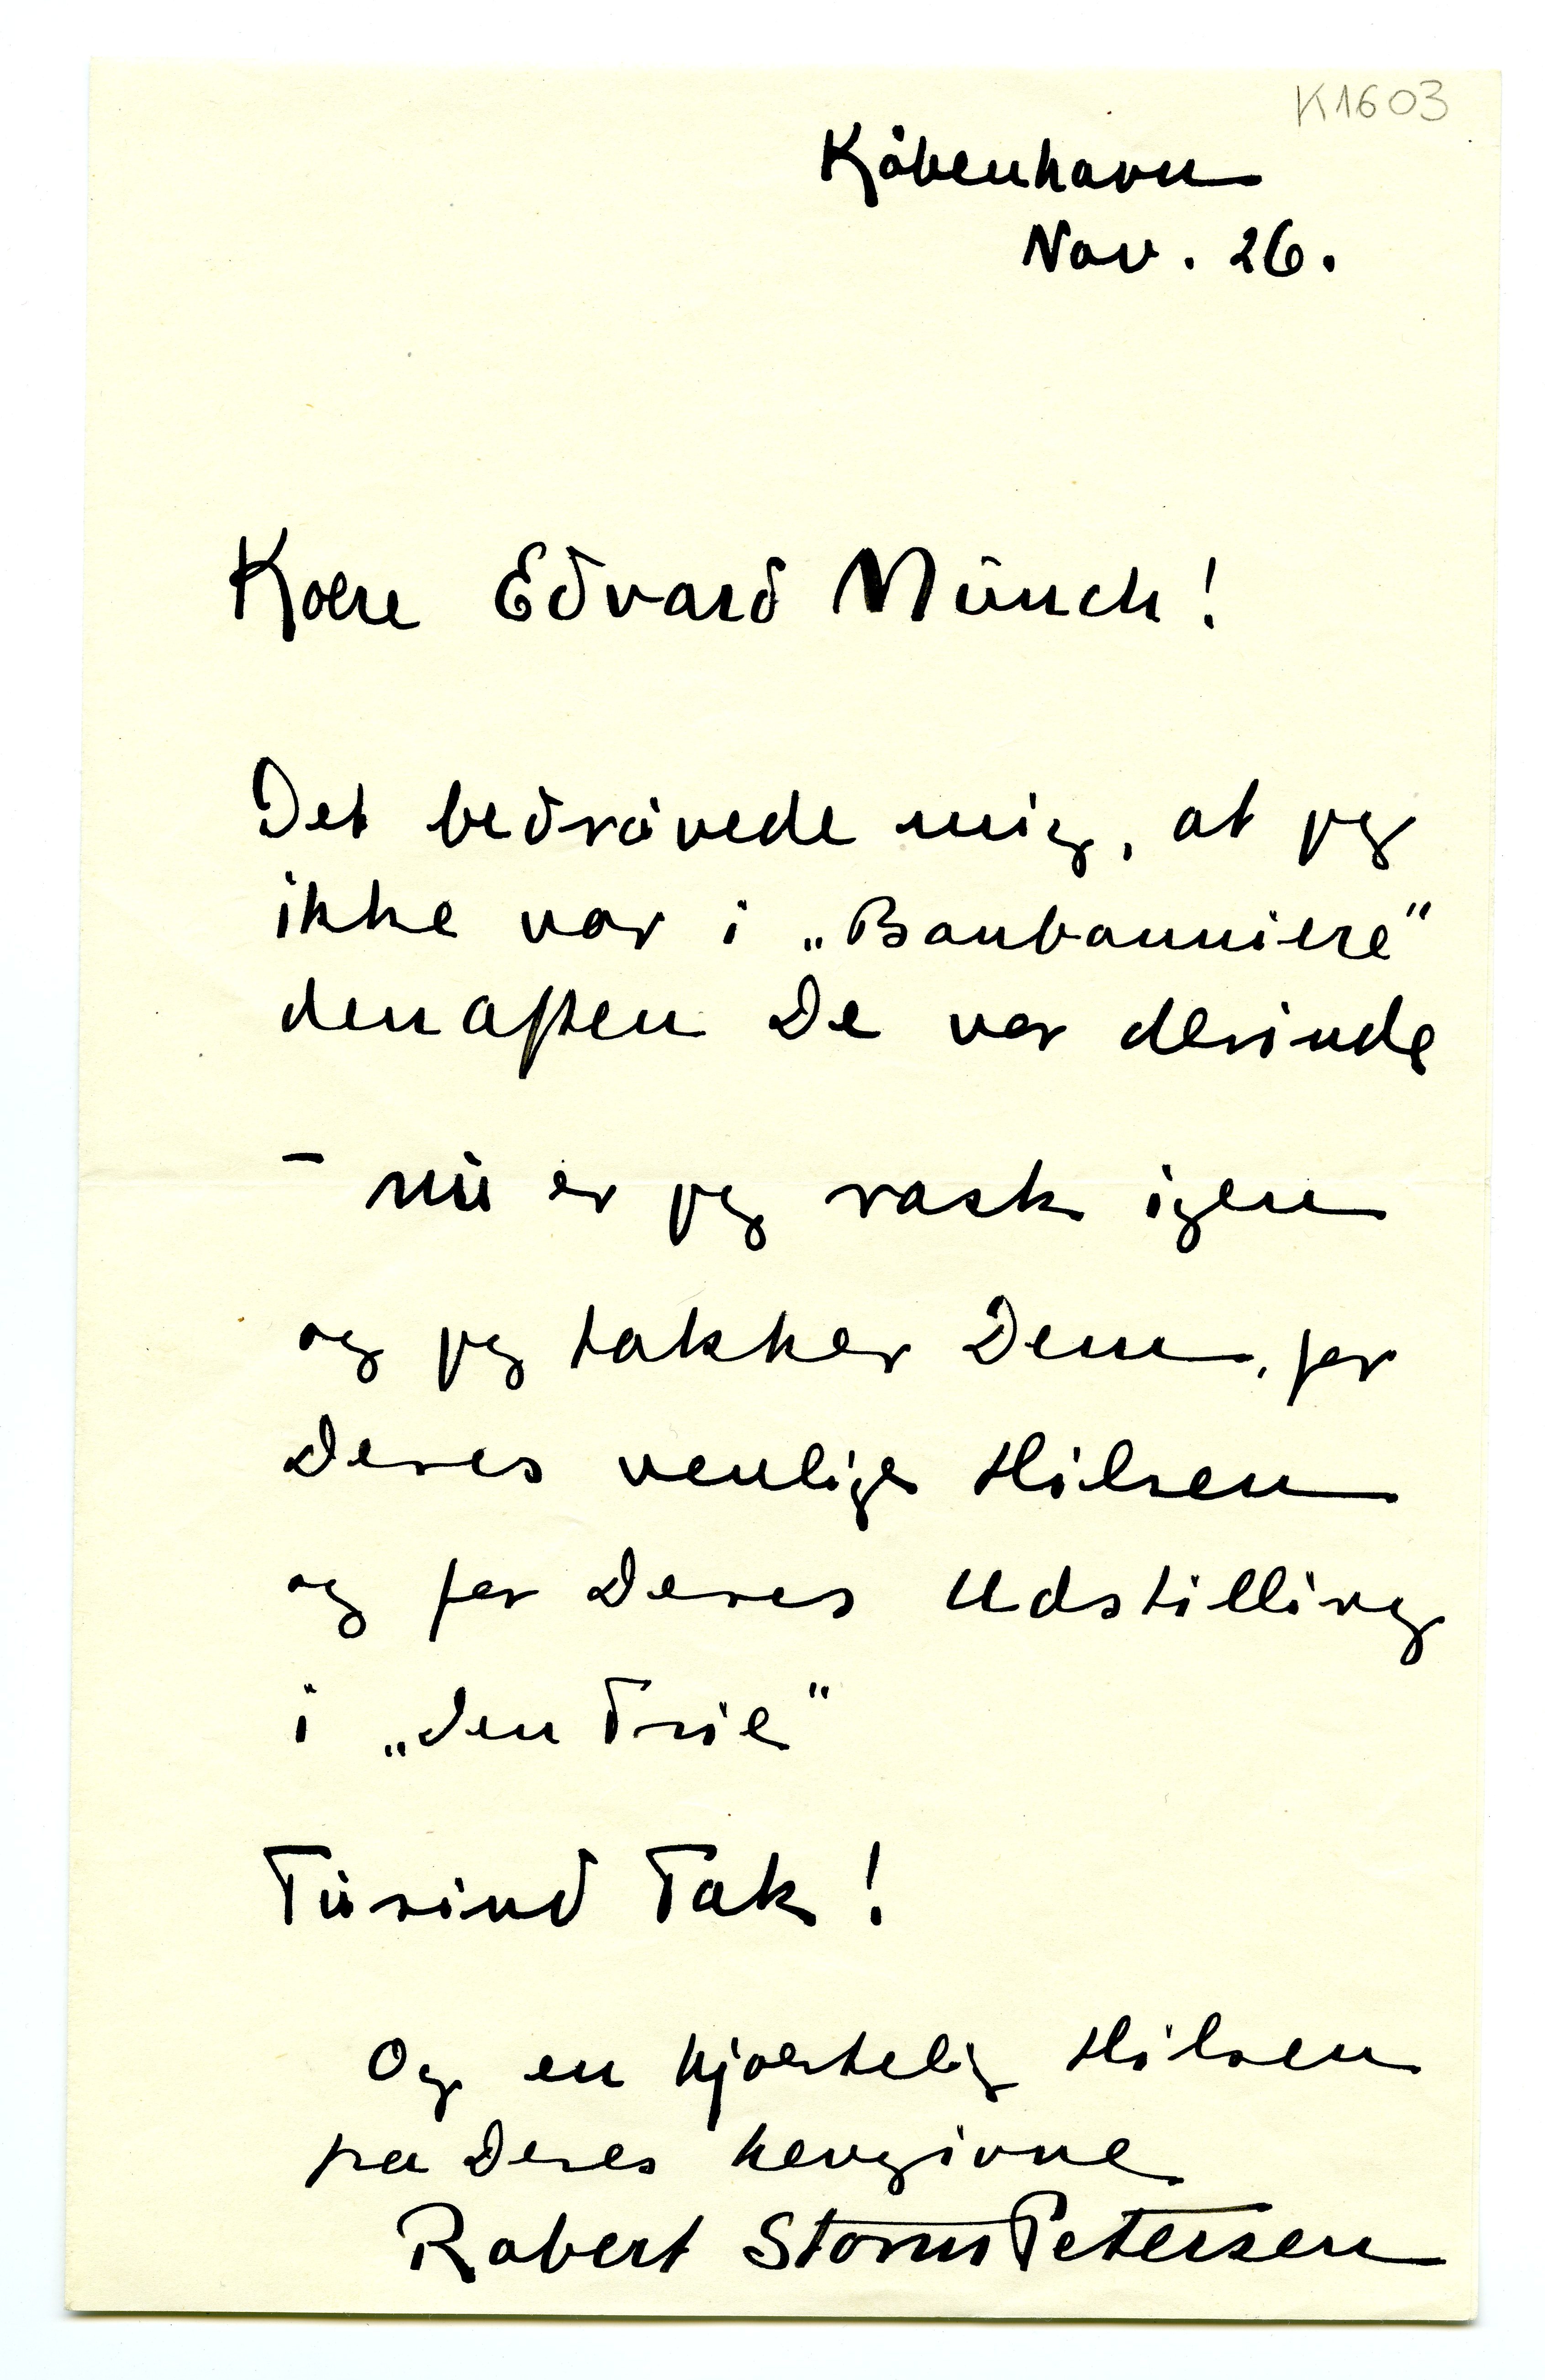 K1603
København
Nov. 26.
Kære Edvard Munch!
Det bedrøvede mig, at jeg
ikke var i „Bonbonniere"
den aften De var derinde
– nu er jeg rask igen
og jeg takker Dem, for
Deres venlige Hilsen
og for Deres Udstilling
i „den Frie"
Tusind Tak!
Og en hjærtelig Hilsen
fra Deres hengivne
Robert Storm Petersen